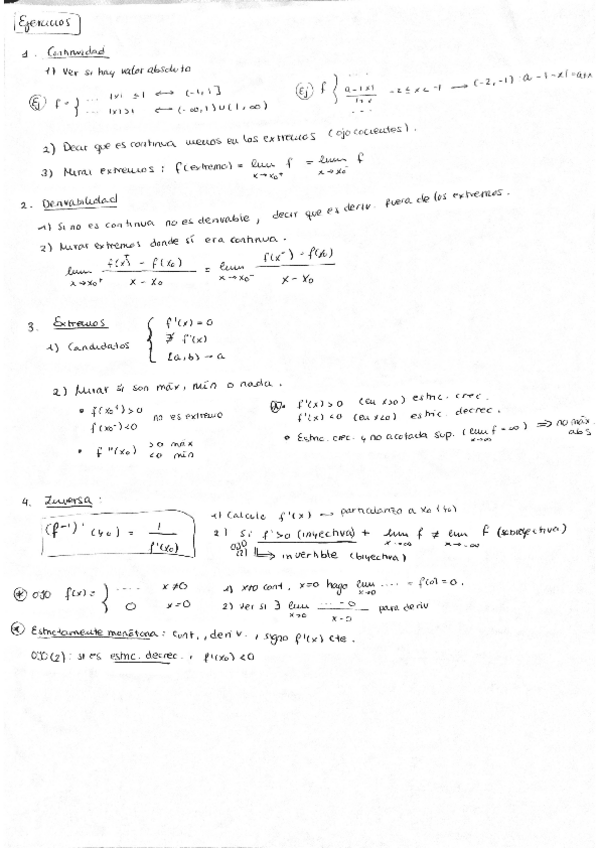 Ejercicios
1. Continuidad
1) Ver si hay valor absoluto
Ej f = { ... |x| ≤ 1 ⟷ (-1, 1]
|x| > 1 ⟷ (-∞, 1) ∪ (1, ∞)
Ej f { ...
a-|x| -2 ≤ x < -1 ⟶ (-2, -1)
...
2) Decir que es continua menos en los extremos (ojo cocientes).
3) Mirar extremos: f(extremo) = lim x→x₀⁺ f = lim x→x₀⁻ f
2. Derivabilidad
1) Si no es continua no es derivable, decir que es deriv. fuera de los extremos.
2) Mirar extremos donde sí era continua.
lim x→x₀⁺ f(x⁺) - f(x₀) / x - x₀ = lim x→x₀⁻ f(x⁻) - f(x₀) / x - x₀
3. Extremos
1) Candidatos { f'(x) = 0
∄ f'(x)
[a, b) → a
2) Mirar si son máx, mín o nada.
• f(x₀⁺) > 0
f(x₀⁻) < 0 no es extremo
• f''(x₀) > 0 máx
< 0 mín
• f'(x) > 0 (en x>0) estric. crec.
f'(x) < 0 (en x<0) estric. decrec.
• Estric. crec. y no acotada sup. (lim x→∞ f = ∞) ⟹ no máx abs
4. Inversa:
(f⁻¹)'(y₀) = 1 / f'(x₀)
1) Calcule f'(x) → particularizo a x₀ (y₀)
2) Si f'>0 (inyectiva) + lim x→∞ f ≠ lim x→-∞ f (sobreyectiva)
OJO (2) ↳ invertible (biyectiva)
* OJO f(x) = { .... x≠0
0 x=0
1) x≠0 cont., x=0 hago lim x→0 .... = f(0) = 0.
2) Ver si ∃ lim x→0 ... - 0 / x - 0 para deriv
* Estrictamente monótona: cont., deriv., signo f'(x) cte.
OJO(2): si es estric. decrec., f'(x₀) < 0